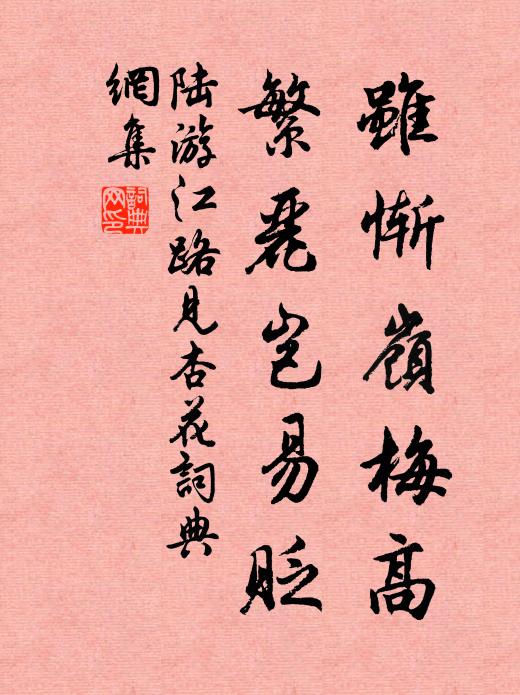 雖慚嶺梅高
繁麗岂易貶
陆游江路見杏花詞典
網集
詞典網印